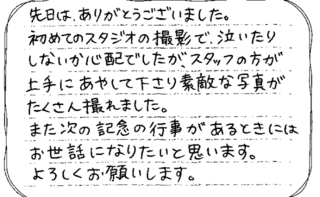 先日は、ありがとうございました。
初めてのスタジオの撮影で、泣いたり
しないか心配でしたがスタッフの方が
上手にあやして下さり素敵な写真が
たくさん撮れました。
また次の記念の行事があるときには
お世話になりたいと思います。
よろしくお願いします。